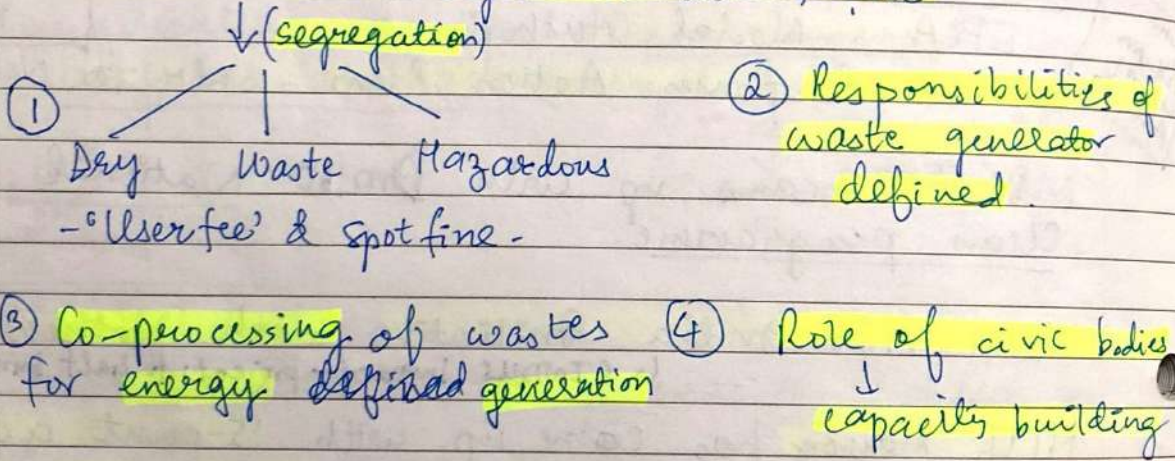 (segregation)
①
Dry Waste Hazardous
-'User fee' & Spot fine-
② Responsibilities of
waste generator
defined.
③ Co-processing of wastes
for energy defined generation
④ Role of civic bodies
↓
capacity building